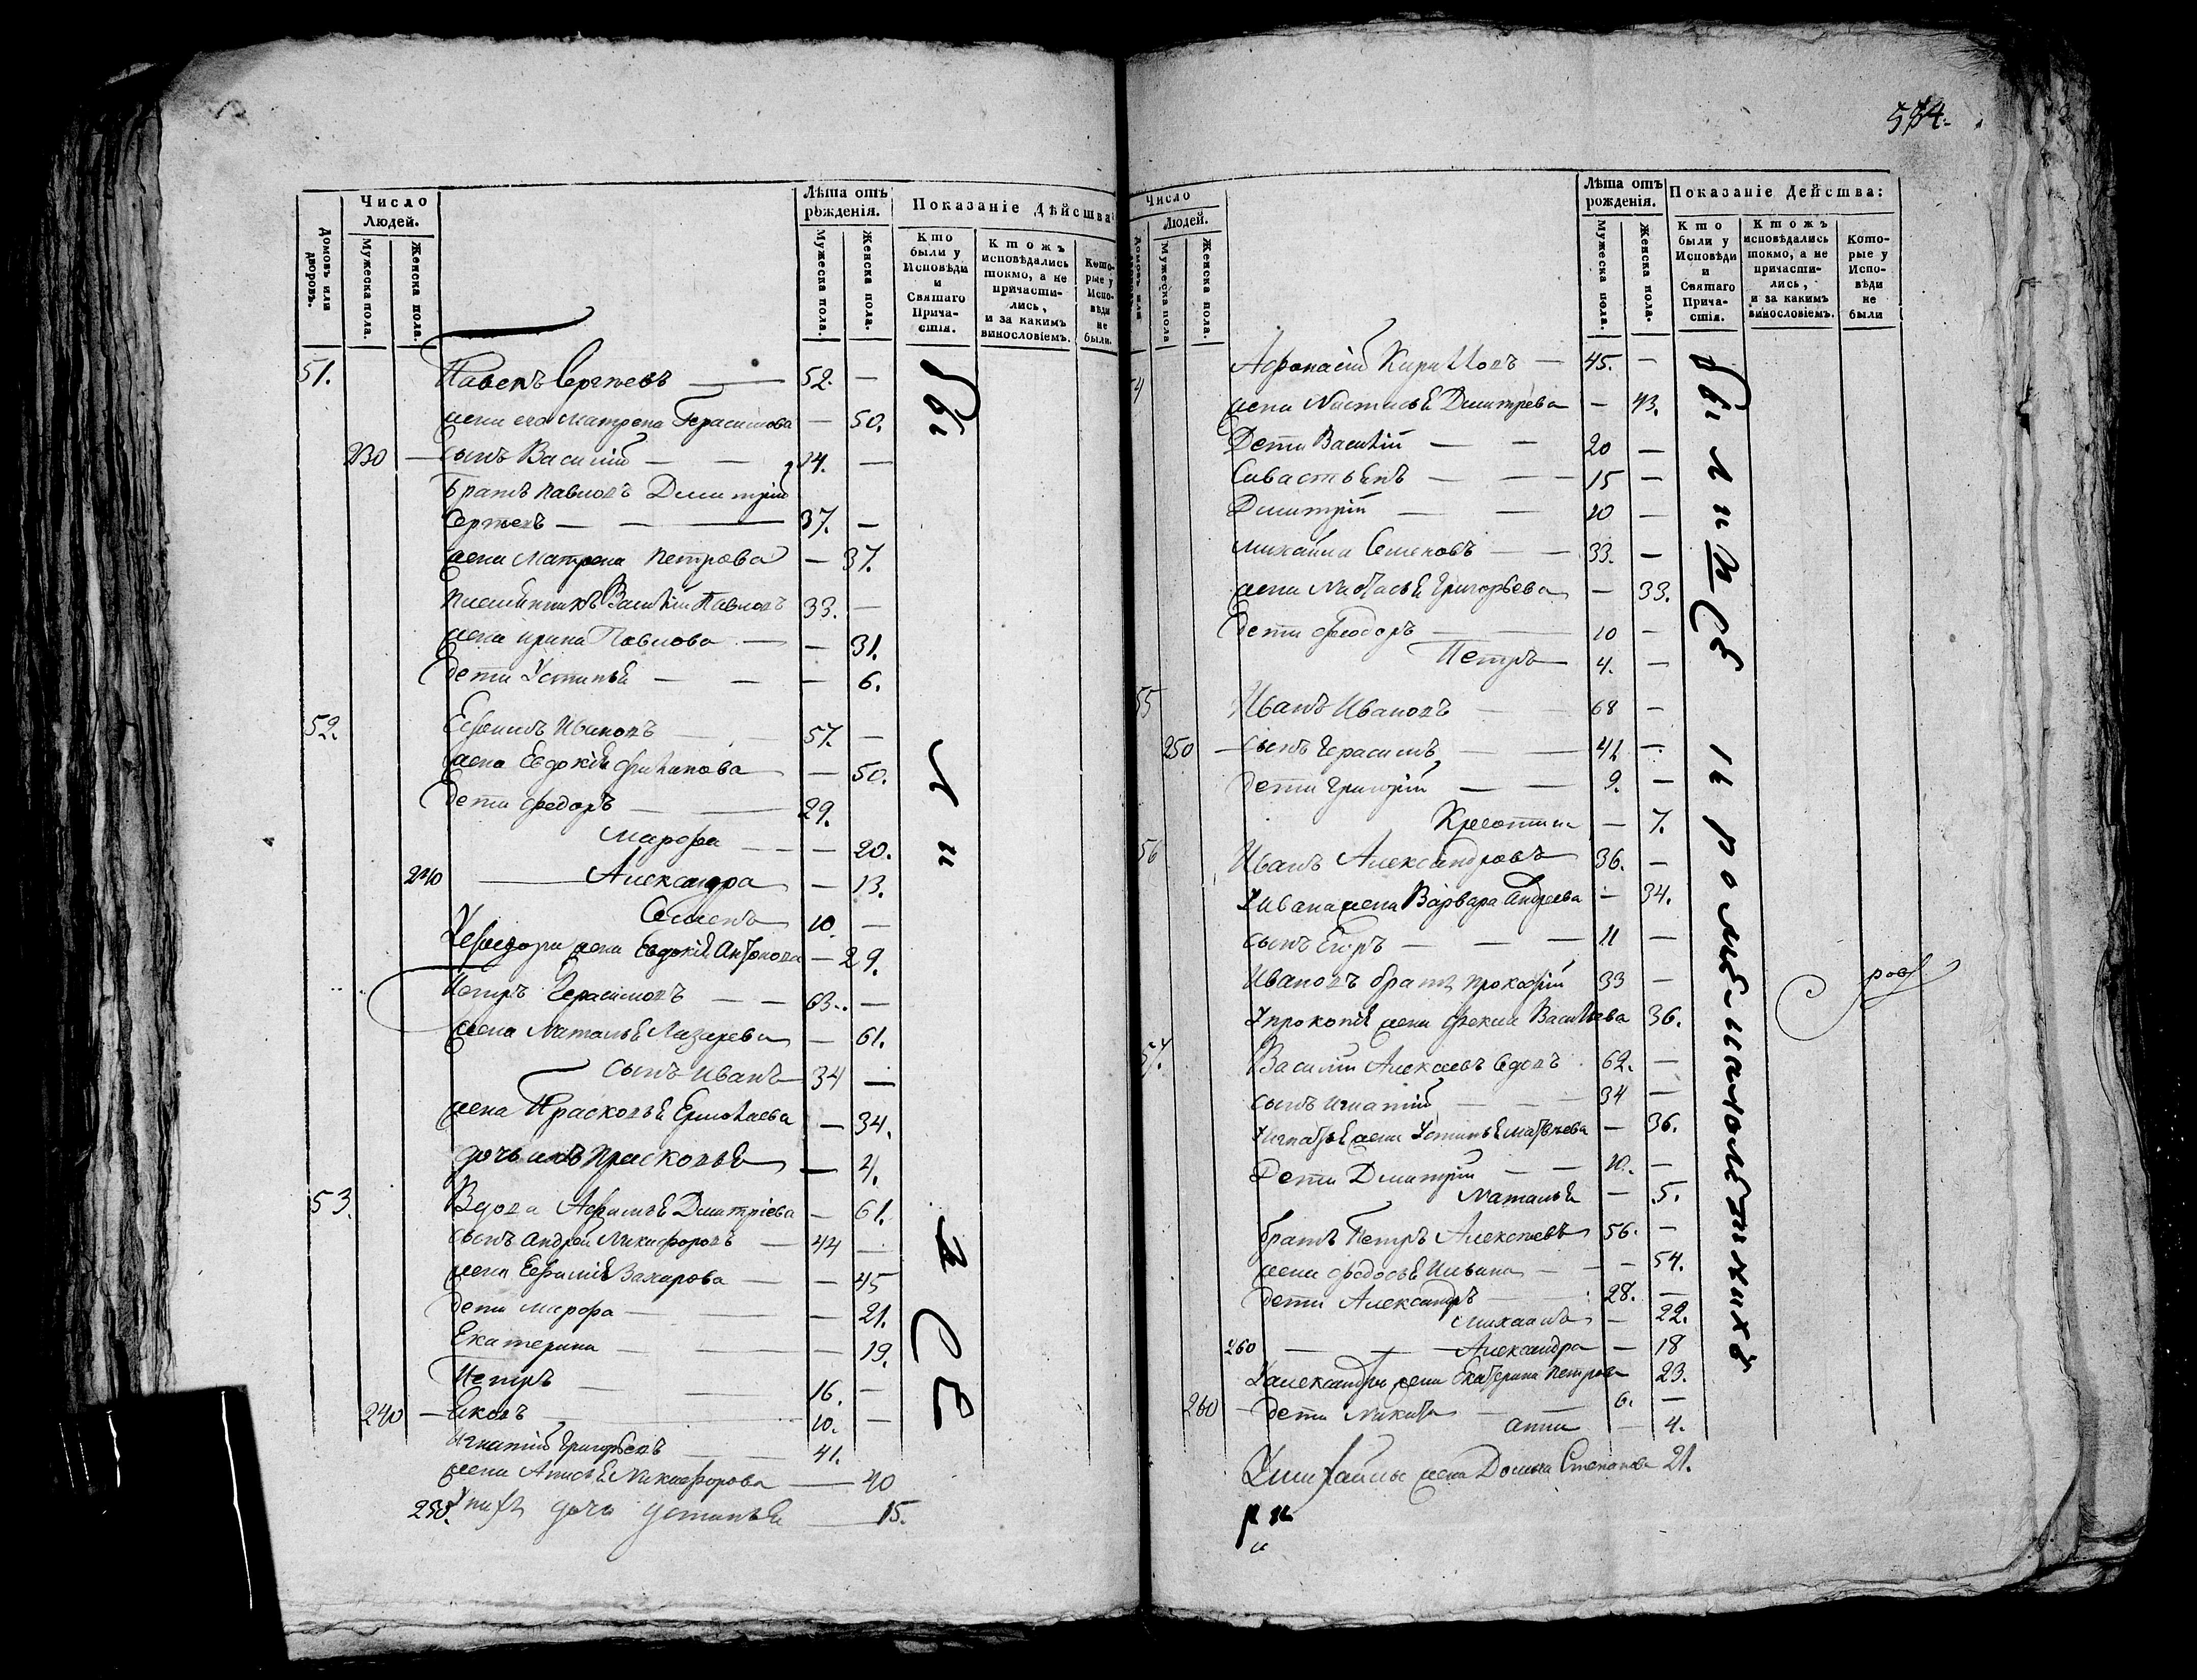 534.
Число
Людей.
Лѣта отъ
рожденія.
Показаніе Дѣйства
Домовъ или дворовъ.
Мужеска пола.
Женска пола.
Мужеска пола.
Женска пола.
Кто были у Исповѣди и Святаго Причастія.
Ктожъ исповѣдались токмо, а не причастились, и за какимъ винословіемъ.
Которые у Исповѣди не были.
51. Павелъ Сергѣевъ — 52. —
жена его Матрена Герасимова — 50.
230 — сынъ Василій — — 24. —
братъ Павловъ Дмитрій
Сергѣевъ — — — 37. —
жена Матрена Петрова — 37.
племянникъ Василій Павловъ 33. —
жена Ирина Павлова — — 31.
дети Устинья — — — 6.
52. Ефимъ Ивановъ — 57. —
жена Евдокія Филипова — 50.
дети Федоръ — — 29.
Марфа — — — 20.
240 — Александра — 13.
Семенъ 10. —
жена Евдокія Антонова — 29.
Петръ Герасимовъ — — 63. —
жена Наталья Лазарева — 61.
сынъ Иванъ — 34 —
жена Прасковья Ермолаева — 34.
дочь ихъ Прасковья — 4.
53. Вдова Афимья Дмитріева — 61.
сынъ Андрей Никифоровъ — 44 —
жена Ефимія Захарова — — 45
дети Марфа — — — 21.
Екатерина — — — 19.
Петръ — — 16. —
240 — Яковъ — 10. —
Игнатій Григорьевъ — 41.
жена Анисья Никифорова — 40
250. У нихъ дочь Устинья — 15.
бы
л
и
В
С
Ѣ
Число
Людей.
Лѣта отъ
рожденія.
Показаніе Действа:
Домовъ или
Мужеска пола
Женска пола.
Мужеска пола.
Женска пола.
Кто были у Исповѣди и Святаго Причастія.
Ктожъ исповѣдались токмо, а не причастились, и за какимъ винословіемъ.
Которые у Исповѣди не были
54 Афонасій Кириловъ — 45. —
жена Настасья Дмитрева — 43.
Дети Василій — — 20 —
Сивастьянъ — — — 15 —
Димитрій — — 10 —
Михайла Семеновъ — — 33. —
жена Настасья Григорьева — 33.
дети Феодоръ — — 10 —
Петръ — 4. —
55 Иванъ Ивановъ — — 68 —
250 — сынъ Герасимъ — — 41 —
дети Григорій — — 9. —
— 7.
56 Иванъ Александровъ 36. —
У Ивана жена Варвара Андреева — 34.
сынъ Егоръ — — — 11 —
Ивановъ братъ Прокофій 33 —
У Прокопія жена Фекла Василева 36.
57. Василій Алексеевъ вдовъ 62. —
сынъ Игнатій — — 34 —
У Игнатья жена Устинья Матвѣева — 36.
Дети Дмитрій — — 10. —
Наталья — 5.
братъ Петръ Алексѣевъ 56. —
жена Федосья Ильина — — — 54.
дети Александръ — 28. —
— 22.
260 — — — Александра — 18
У Александра жена Екатерина Петрова 23.
260 — дети Никита — — 6. —
Анна — 4.
жена Домна Степанова 21.
были Всѣ
кромѣ малолѣтнихъ